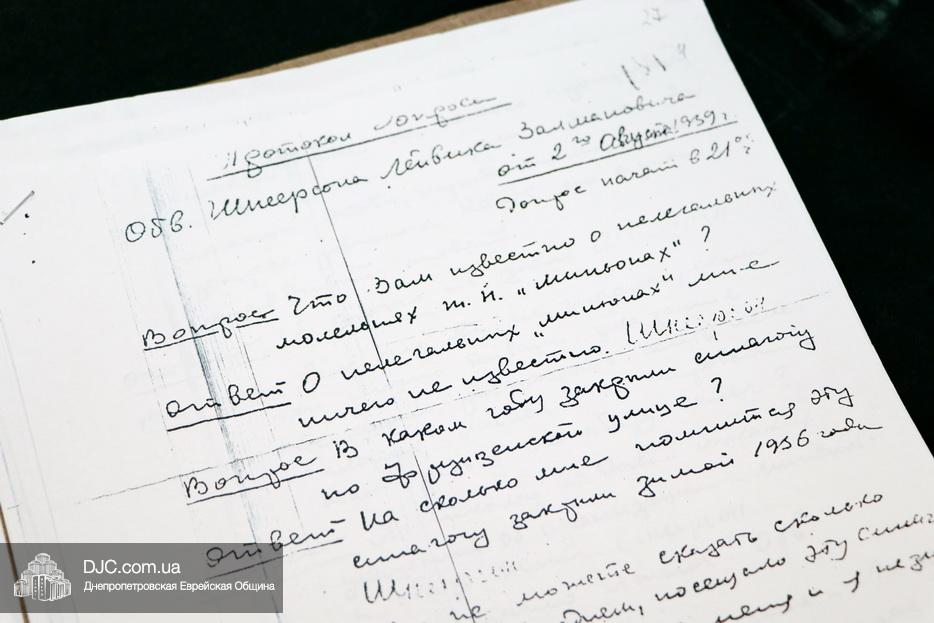 27
Протокол допроса
Обв. Шнеерсона Лейвика Залмановича
от 2го Августа 1939 г.
Допрос начат в 21 ч.
Вопрос Что Вам известно о нелегальных
молельнях т.н. "миньонах"?
Ответ О нелегальных "миньонах" мне
ничего не известно.
Вопрос В каком году закрыли синагогу
по Фрунзенской улице?
Ответ На сколько мне помнится эту
синагогу закрыли зимой 1936 года
не можете сказать сколько
посещало эту
DJC.com.ua
Днепропетровская Еврейская Община